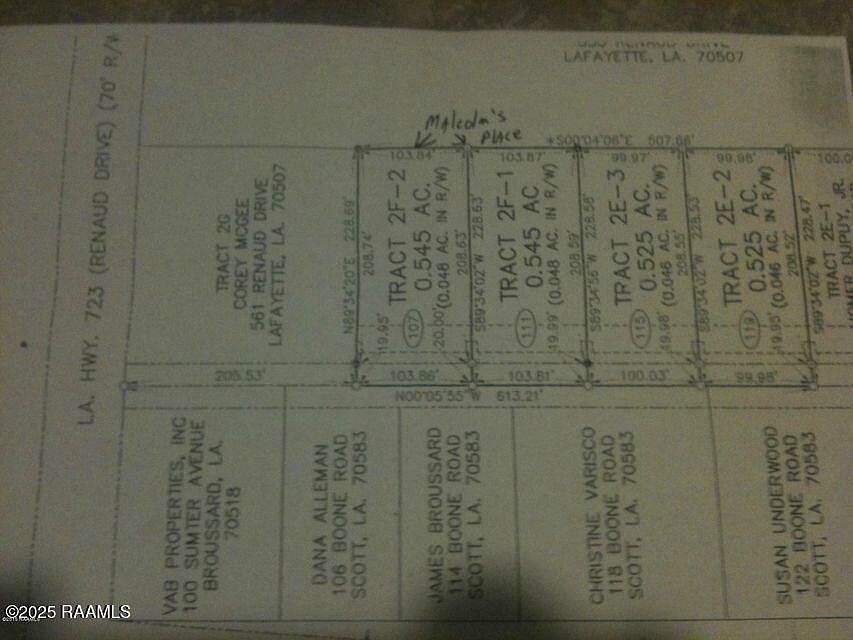 LA. HWY. 723 (RENAUD DRIVE) (70' R/W
LAFAYETTE, LA. 70507
Malcolm's
Place
*S00°04'06"E 507.66'
103.84'
103.87'
99.97'
99.98'
100.0
TRACT 2G
COREY MCGEE
561 RENAUD DRIVE
LAFAYETTE, LA. 70507
N89°34'20"E 228.69'
208.74'
TRACT 2F-2
0.545 AC.
(0.048 AC. IN R/W)
107
19.95'
20.00'
208.63'
S89°34'02"W 228.63'
TRACT 2F-1
0.545 AC.
(0.048 AC. IN R/W)
111
19.99'
208.59'
S89°34'56"W 228.58'
TRACT 2E-3
0.525 AC.
(0.046 AC. IN R/W)
115
19.98'
208.55'
S89°34'02"W 228.53'
TRACT 2E-2
0.525 AC.
(0.046 AC. IN R/W)
119
19.95'
208.52'
S89°34'02"W 228.47'
TRACT 2E-1
HOMER DUPUY, JR.
205.53'
103.86'
103.81'
100.03'
99.98'
N00°05'55"W 613.21'
VAB PROPERTIES, INC
100 SUMTER AVENUE
BROUSSARD, LA.
70518
DANA ALLEMAN
106 BOONE ROAD
SCOTT, LA. 70583
JAMES BROUSSARD
114 BOONE ROAD
SCOTT, LA. 70583
CHRISTINE VARISCO
118 BOONE ROAD
SCOTT, LA. 70583
SUSAN UNDERWOOD
122 BOONE ROAD
SCOTT, LA. 70583
©2025 RAAMLS